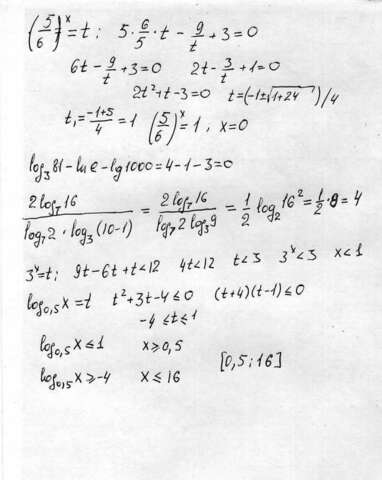 (5/6)^x = t : 5 · 6/5 · t - 9/t + 3 = 0
6t - 9/t + 3 = 0 2t - 3/t + 1 = 0
2t² + t - 3 = 0 t = (-1 ± √1+24)/4
t₁ = (-1+5)/4 = 1 (5/6)^x = 1, x = 0
log₃81 - ln e - lg1000 = 4 - 1 - 3 = 0
2log₇16 / (log₇2 · log₃(10-1)) = 2log₇16 / (log₇2 log₃9) = 1/2 log₂16² = 1/2 · 8 = 4
3^x = t; 9t - 6t + t < 12 4t < 12 t < 3 3^x < 3 x < 1
log₀,₅x = t t² + 3t - 4 ≤ 0 (t+4)(t-1) ≤ 0
-4 ≤ t ≤ 1
log₀,₅x ≤ 1 x ≥ 0,5
log₀,₅x ≥ -4 x ≤ 16 [0,5; 16]